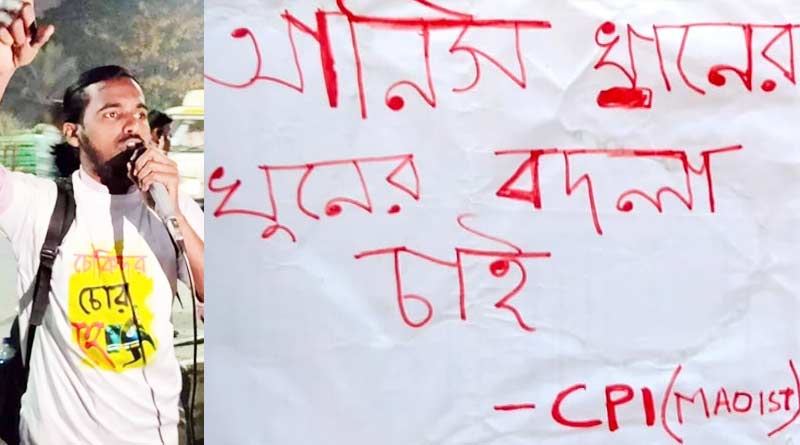 চৌকিদার
চোর
হ্যায়
আনিস খানের
খুনের বদলা
চাই
- CPI (MAOIST)